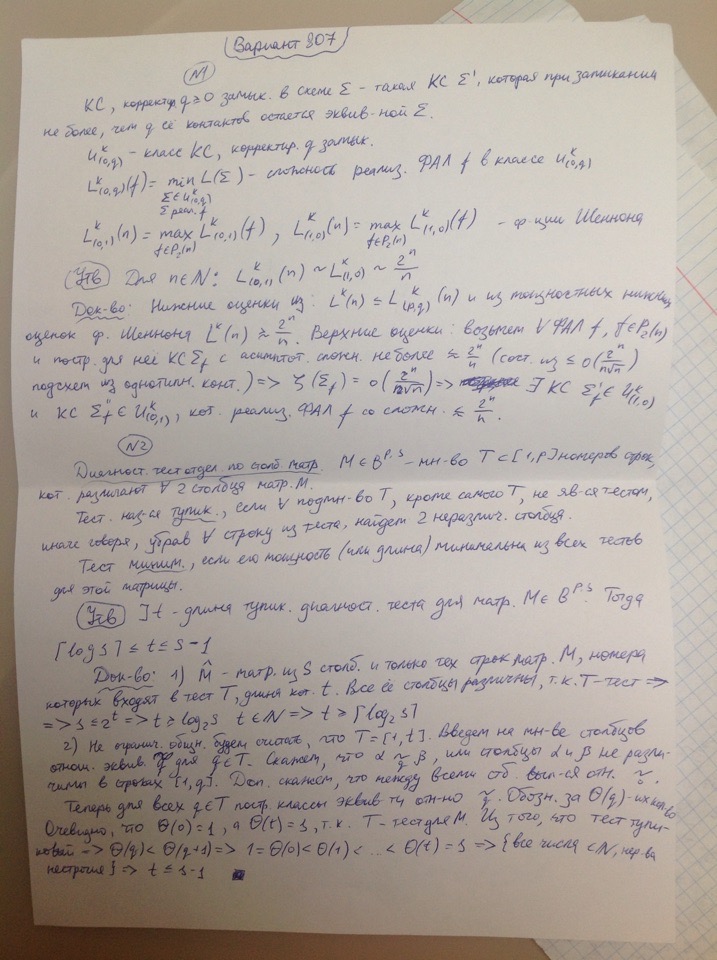 Вариант 807
N1
КС, корректир. q ≥ 0 замык. в схеме Σ – такая КС Σ', которая при замыкании
не более, чем q её контактов остается эквив-ной Σ.
U^k_(0,q) – класс КС, корректир. q замык.
L^k_(0,q)(f) = min L(Σ) – сложность реализ. ФАЛ f в классе U^k_(0,q)
Σ∈U^k_(0,q)
Σ реал. f
L^k_(0,1)(n) = max L^k_(0,1)(f), L^k_(1,0)(n) = max L^k_(1,0)(f) – ф-ции Шеннона
f∈P₂(n) f∈P₂(n)
Утв Для n∈N: L^k_(0,1)(n) ~ L^k_(1,0) ~ 2^n/n
Док-во: Нижние оценки из: L^k(n) ≤ L^k_(p,q)(n) и из мощностных нижних
оценок ф. Шеннона L^k(n) ≳ 2^n/n. Верхние оценки: возьмем ∀ ФАЛ f, f∈P₂(n)
и постр. для неё КС Σ_f с асимптот. сложн. не более ≈ 2^n/n (сост. из ≤ O(2^n/(n√n))
подсхем из однотипн. конт.) => ζ(Σ_f) = o(2^n/(n√n)) => ∃ КС Σ'_f ∈ U^k_(1,0)
и КС Σ''_f ∈ U^k_(0,1), кот. реализ. ФАЛ f со сложн. ≲ 2^n/n.
N2
Диагност. тест отдел. по столб. матр. M∈B^{p,s} – мн-во T⊂[1,p] номеров строк,
кот. различают ∀ 2 столбца матр. M.
Тест. наз-ся тупик., если ∀ подмн-во T, кроме самого T, не яв-ся тестом,
иначе говоря, убрав ∀ строку из теста, найдем 2 неразлич. столбца.
Тест миним., если его мощность (или длина) минимальна из всех тестов
для этой матрицы.
Утв ∃ t – длина тупик. диагност. теста для матр. M∈B^{p,s}. Тогда
⌈log s⌉ ≤ t ≤ s–1
Док-во: 1) M̂ – матр. из s столб. и только тех строк матр. M, номера
которых входят в тест T, длина кот. t. Все её столбцы различны, т.к. T–тест =>
=> s ≤ 2^t => t ≥ log₂s t∈N => t ≥ ⌈log₂s⌉
2) Не огранич. общн. будем считать, что T=[1,t]. Введем на мн-ве столбцов
отнош. эквив. для q∈T. Скажем, что α ~_q β, или столбцы α и β не разли-
чимы в строках [1,q]. Доп. скажем, что между всеми стб. вып-ся отн. ~_0.
Теперь для всех q∈T постр. классы эквив-ти отн-но ~_q. Обозн. за Θ(q) – их кол-во
Очевидно, что Θ(0)=1, а Θ(t)=s, т.к. T–тест для M. Из того, что тест тупи-
ковый => Θ(q)<Θ(q+1) => 1=Θ(0)<Θ(1)<...<Θ(t)=s => {все числа ∈N, нер-ва
нестрогие} => t ≤ s–1